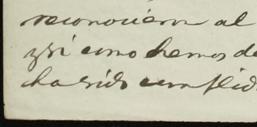 reconocieron al
y si como hemos de
ha sido cumplid